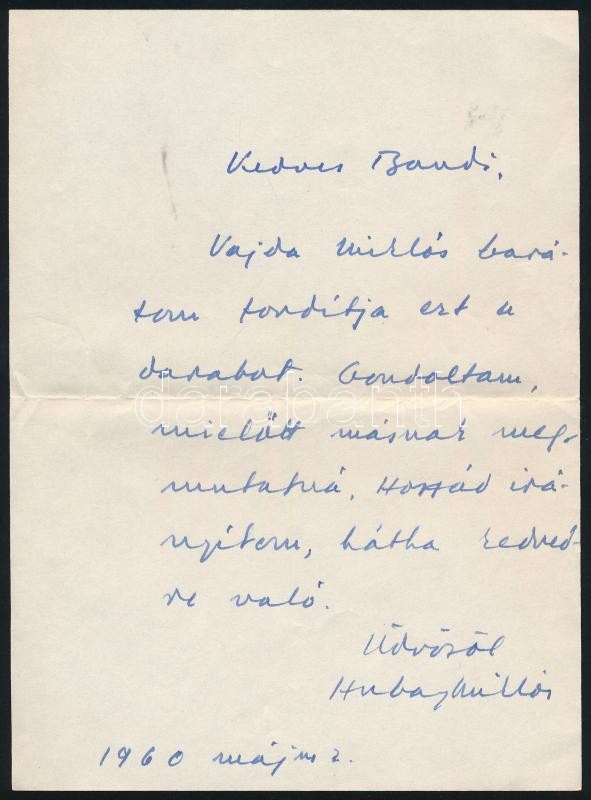 Kedves Bandi,
Vajda Miklós bará-
tom fordítja ezt a
darabot. Gondoltam,
darabanth
mielőtt másnak meg-
mutatná, Hozzád irá-
nyítom, hátha kedved-
re való.
Üdvözöl
Hubay Miklós
1960 május 2.